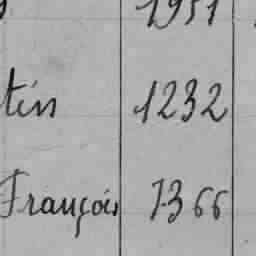 1951
tin 1232
François 1366